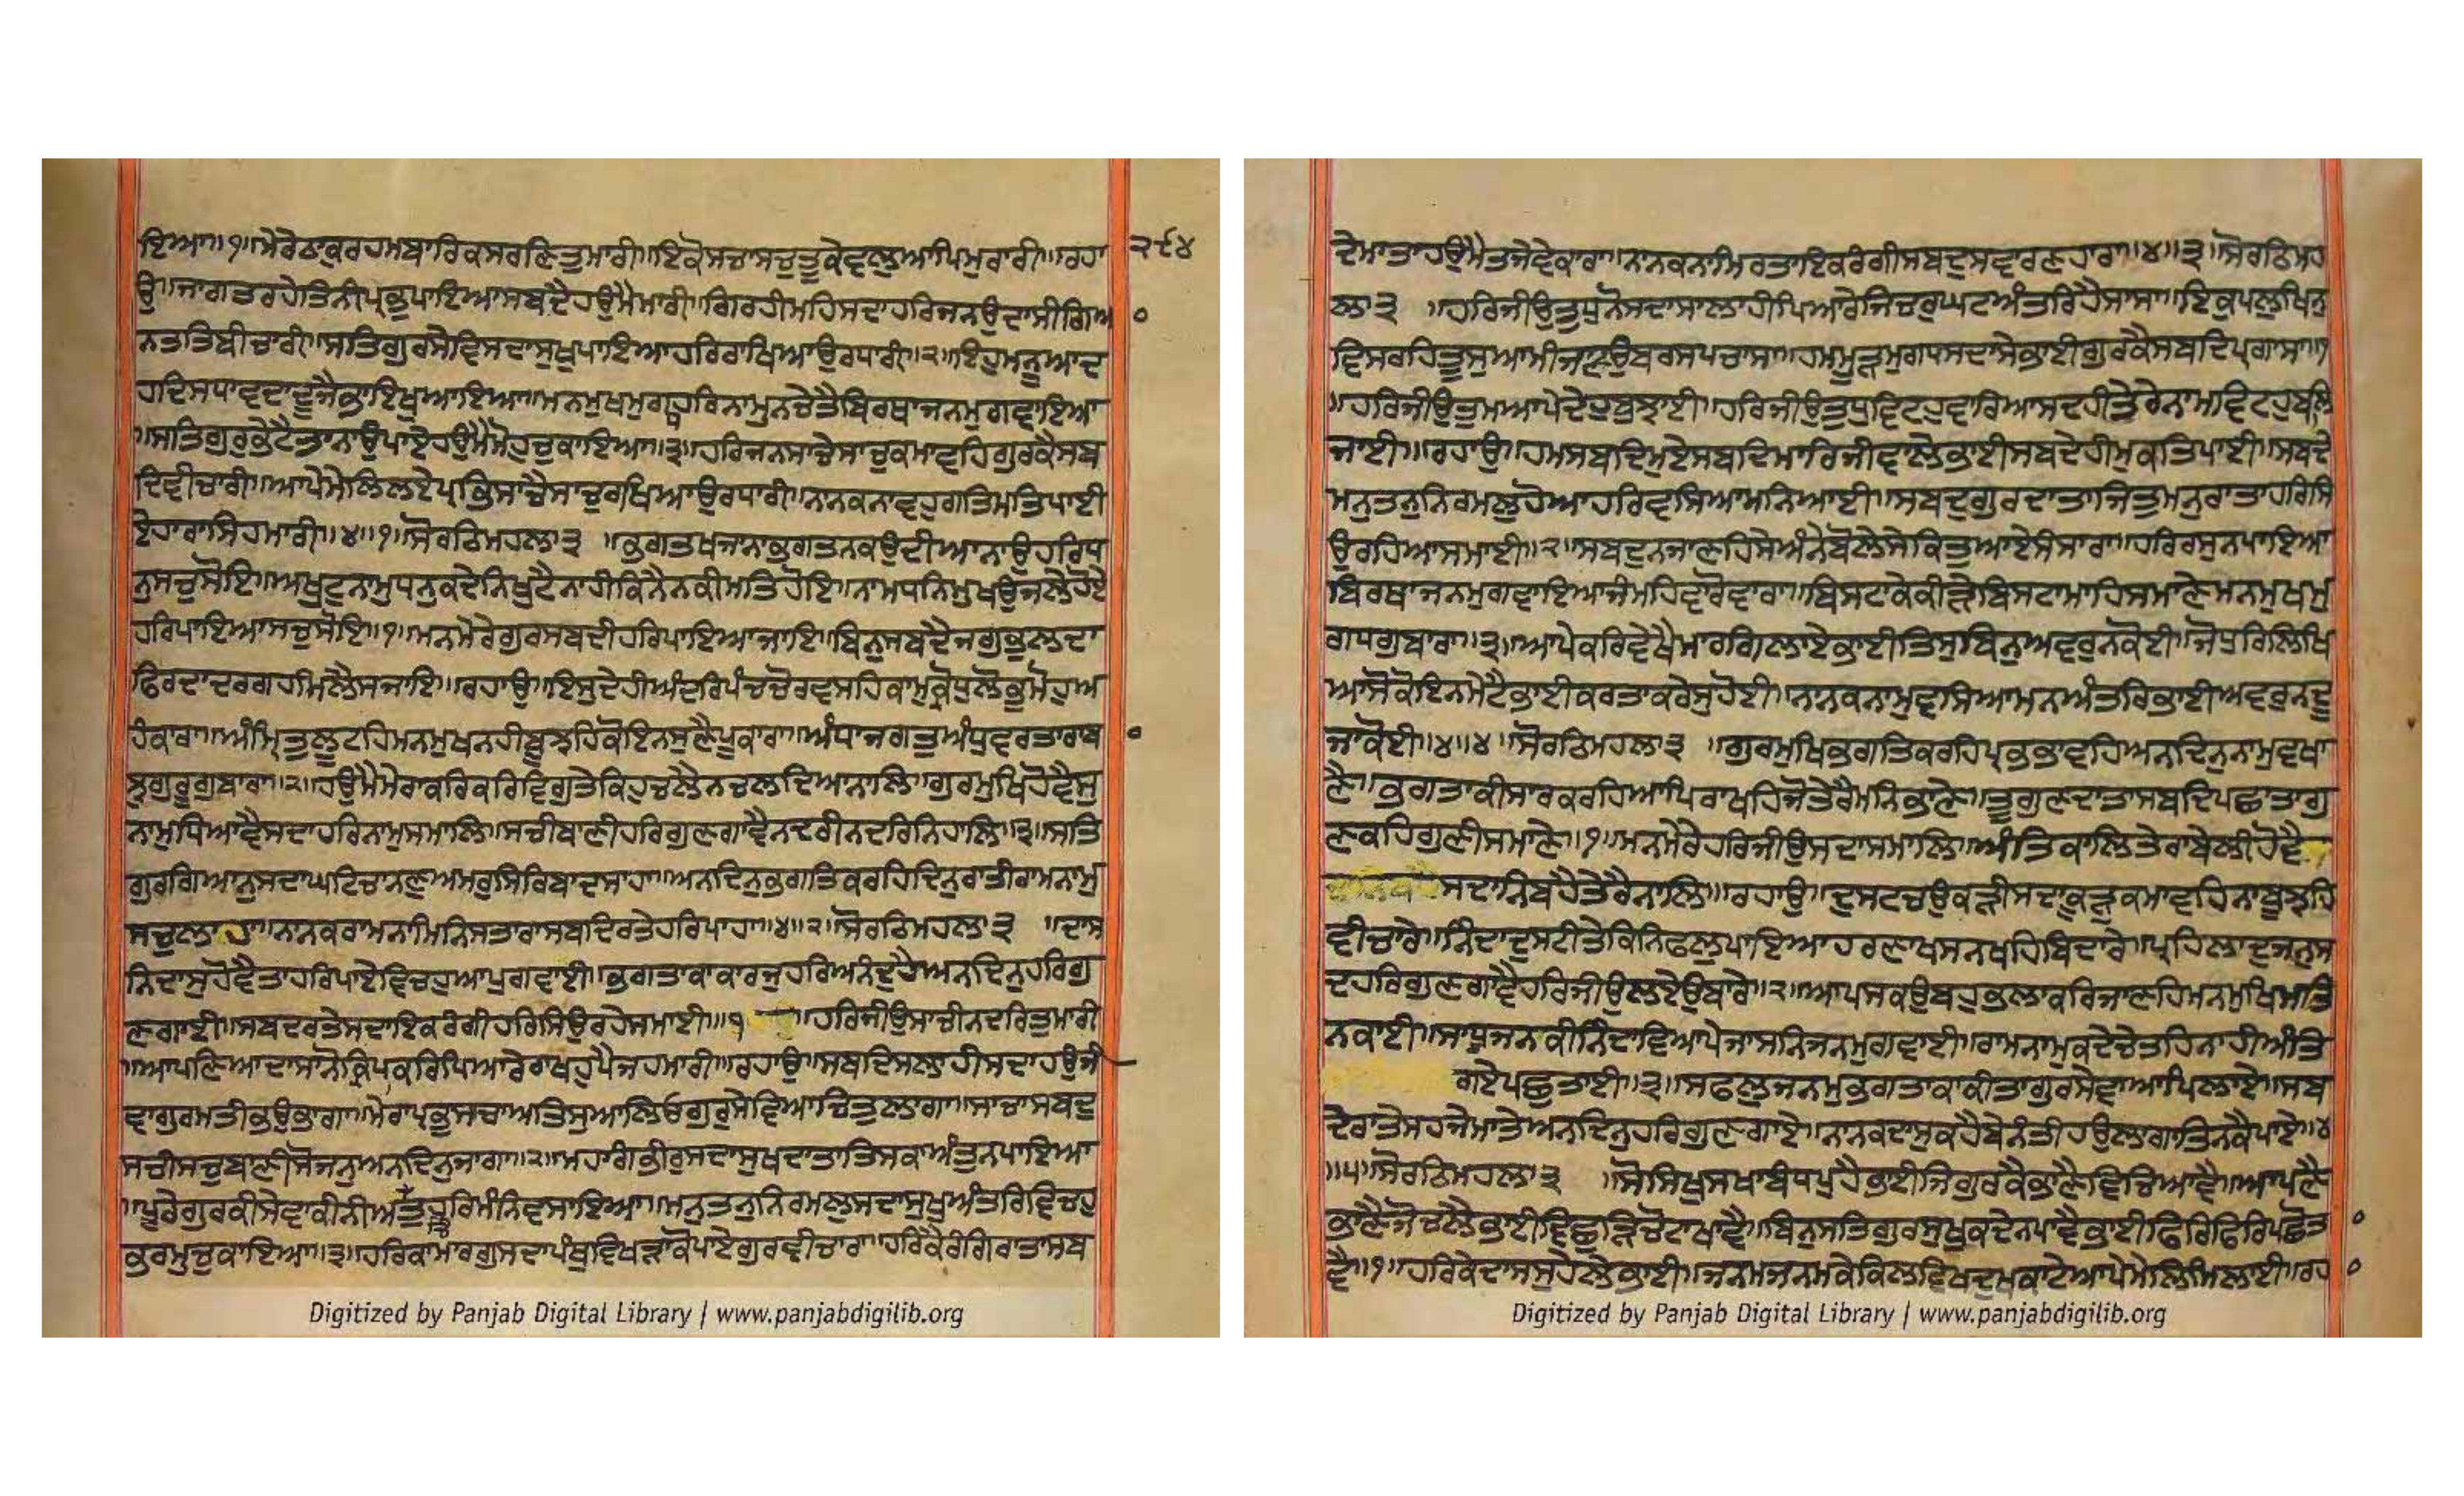 ਇਆ॥੧॥ਮੇਰੇਠਾਕੁਰਹਮਬਾਰਿਕਸਰਣਿਤੁਮਾਰੀ॥ਇਕੋਸਚਾਸਚੁਤੂਕੇਵਲੁਆਪਿਮੁਰਾਰੀ॥ਰਹਾ
੨੯੪
ਉ॥ਜਾਗਤਰਹੇਤਿਨੀਪ੍ਰਭੁਪਾਇਆਸਬਦੈਹਉਮੈਮਾਰੀ॥ਗਿਰਹੀਮਹਿਸਦਾਹਰਿਜਨਉਦਾਸੀਗਿਆ
ਨਤਤਿਬੀਚਾਰੀ॥ਸਤਿਗੁਰਸੇਵਿਸਦਾਸੁਖੁਪਾਇਆਹਰਿਰਾਖਿਆਉਰਧਾਰੀ॥੨॥ਇਹੁਮਨੂਆਦ
ਹਦਿਸਧਾਵਦਾਦੂਜੈਭਾਇਖੁਆਇਆ॥ਮਨਮੁਖਮੁਗਧੁਹਰਿਨਾਮੁਨਚੇਤੈਬਿਰਥਾਜਨਮੁਗਵਾਇਆ
॥ਸਤਿਗੁਰੁਭੇਟੈਤਾਨਾਉਪਾਏਹਉਮੈਮੋਹੁਚੁਕਾਇਆ॥੩॥ਹਰਿਜਨਸਾਚੇਸਾਚੁਕਮਾਵਹਿਗੁਰਕੈਸਬ
ਦਿਵੀਚਾਰੀ॥ਆਪੇਮੇਲਿਲਏਪ੍ਰਭਿਸਾਚੈਸਾਚੁਰਖਿਆਉਰਧਾਰੀ॥ਨਾਨਕਨਾਵਹੁਗਤਿਮਤਿਪਾਈ
ਏਹਾਰਾਸਿਹਮਾਰੀ॥੪॥੧॥ਸੋਰਠਿਮਹਲਾ੩ ॥ਭਗਤਖਜਨਾਭਗਤਨਕਉਦੀਆਨਾਉਹਰਿਧ
ਨੁਸਚੁਸੋਇ॥ਅਖੁਟੁਨਾਮੁਧਨੁਕਦੇਨਿਖੁਟੈਨਾਹੀਕਿਨੈਨਕੀਮਤਿਹੋਇ॥ਨਾਮਧਨਿਮੁਖਉਜਲੇਹੋਏ
ਹਰਿਪਾਇਆਸਚੁਸੋਇ॥੧॥ਮਨਮੇਰੇਗੁਰਸਬਦੀਹਰਿਪਾਇਆਜਾਇ॥ਬਿਨੁਸਬਦੈਜਗੁਭੁਲਦਾ
ਫਿਰਦਾਦਰਗਹਮਿਲੈਸਜਾਇ॥ਰਹਾਉ॥ਇਸੁਦੇਹੀਅੰਦਰਿਪੰਚਚੋਰਵਸਹਿਕਾਮੁਕ੍ਰੋਧੁਲੋਭੁਮੋਹੁਅ
ਹੰਕਾਰਾ॥ਅੰਮ੍ਰਿਤੁਲੂਟਹਿਮਨਮੁਖਨਹੀਬੂਝਹਿਕੋਇਨਸੁਣੈਪੂਕਾਰਾ॥ਅੰਧਾਜਗਤੁਅੰਧੁਵਰਤਾਰਾਬਾ
ਝੁਗੁਰੂਗੁਬਾਰਾ॥੨॥ਹਉਮੈਮੇਰਾਕਰਿਕਰਿਵਿਗੁਤੇਕਿਹੁਚਲੈਨਚਲਦਿਆਨਾਲਿ॥ਗੁਰਮੁਖਿਹੋਵੈਸੁ
ਨਾਮੁਧਿਆਵੈਸਦਾਹਰਿਨਾਮੁਸਮਾਲਿ॥ਸਚੀਬਾਣੀਹਰਿਗੁਣਗਾਵੈਨਦਰੀਨਦਰਿਨਿਹਾਲਿ॥੩॥ਸਤਿ
ਗੁਰਗਿਆਨੁਸਦਾਘਟਿਚਾਨਣੁਅਮਰੁਸਿਰਿਬਾਦਸਾਹਾ॥ਅਨਦਿਨੁਭਗਤਿਕਰਹਿਦਿਨੁਰਾਤੀਰਾਮਨਾਮੁ
ਸਚੁਲਾਹਾ॥ਨਾਨਕਰਾਮਨਾਮਿਨਿਸਤਾਰਾਸਬਦਿਰਤੇਹਰਿਪਾਹਾ॥੪॥੨॥ਸੋਰਠਿਮਹਲਾ੩ ॥ਦਾਸ
ਨਿਦਾਸੁਹੋਵੈਤਾਹਰਿਪਾਏਵਿਚਹੁਆਪੁਗਵਾਈ॥ਭਗਤਾਕਾਕਾਰਜੁਹਰਿਅਨੰਦੁਹੈਅਨਦਿਨੁਹਰਿਗੁ
ਣਗਾਈ॥ਸਬਦਰਤੇਸਦਾਇਕਰੰਗੀਹਰਿਸਿਉਰਹੇਸਮਾਈ॥੧ ॥ਹਰਿਜੀਉਸਾਚੀਨਦਰਿਤੁਮਾਰੀ
॥ਆਪਣਿਆਦਾਸਾਨੋਕ੍ਰਿਪਕਰਿਪਿਆਰੇਰਾਖਹੁਪੈਜਹਮਾਰੀ॥ਰਹਾਉ॥ਸਬਦਿਸਲਾਹੀਸਦਾਹਉਜੀ
ਵਾਗੁਰਮਤੀਭਉਭਾਗਾ॥ਮੇਰਾਪ੍ਰਭੁਸਚਾਅਤਿਸੁਆਲਿਓਗੁਰੁਸੇਵਿਆਚਿਤੁਲਾਗਾ॥ਸਾਚਾਸਬਦੁ
ਸਚੀਸਚੁਬਾਣੀਸੋਜਨੁਅਨਦਿਨੁਜਾਗਾ॥੨॥ਮਹਾਗੰਭੀਰੁਸਦਾਸੁਖਦਾਤਾਤਿਸਕਾਅੰਤੁਨਪਾਇਆ
॥ਪੂਰੇਗੁਰਕੀਸੇਵਾਕੀਨੀਅਤੁਹਰਿਮੰਨਿਵਸਾਇਆ॥ਮਨੁਤਨੁਨਿਰਮਲੁਸਦਾਸੁਖੁਅੰਤਰਿਵਿਚਹੁ
ਭਰਮੁਚੁਕਾਇਆ॥੩॥ਹਰਿਕਾਮਾਰਗੁਸਦਾਪੰਥੁਵਿਖੜਾਕੋਪਾਏਗੁਰਵੀਚਾਰਾ॥ਹਰਿਕੈਰੰਗਿਰਾਤਾਸਬ
ਦੇਮਾਤਾਹਉਮੈਤਜੇਵੇਕਾਰਾ॥ਨਾਨਕਨਾਮਿਰਤਾਇਕਰੰਗੀਸਬਦੁਸਵਾਰਣਹਾਰਾ॥੪॥੩॥ਸੋਰਠਿਮਹ
ਲਾ੩ ॥ਹਰਿਜੀਉਤੁਧੁਨੋਸਦਾਸਾਲਾਹੀਪਿਆਰੇਜਿਚਰੁਘਟਅੰਤਰਿਹੈਸਾਸਾ॥ਇਕੁਪਲੁਖਿਨੁ
ਵਿਸਰਹਿਤੂਸੁਆਮੀਜਾਣਉਬਰਸਪਚਾਸਾ॥ਹਮਮੂੜਮੁਗਧਸਦਾਸੇਭਾਈਗੁਰਕੈਸਬਦਿਪ੍ਰਗਾਸਾ॥੧
॥ਹਰਿਜੀਉਤੁਮਆਪੇਦੇਹੁਬੁਝਾਈ॥ਹਰਿਜੀਉਤੁਧੁਵਿਟਹੁਵਾਰਿਆਸਦਹੀਤੇਰੇਨਾਮਵਿਟਹੁਬਲਿ
ਜਾਈ॥ਰਹਾਉ॥ਹਮਸਬਦਿਮੁਏਸਬਦਿਮਾਰਿਜੀਵਾਲੇਭਾਈਸਬਦੇਹੀਮੁਕਤਿਪਾਈ॥ਸਬਦੇ
ਮਨੁਤਨੁਨਿਰਮਲੁਹੋਆਹਰਿਵਸਿਆਮਨਿਆਈ॥ਸਬਦੁਗੁਰਦਾਤਾਜਿਤੁਮਨੁਰਾਤਾਹਰਿਸਿ
ਉਰਹਿਆਸਮਾਈ॥੨॥ਸਬਦੁਨਜਾਣਹਿਸੇਅੰਨੇਬੋਲੇਸੇਕਿਤੁਆਏਸੰਸਾਰਾ॥ਹਰਿਰਸੁਨਪਾਇਆ
ਬਿਰਥਾਜਨਮੁਗਵਾਇਆਜੰਮਹਿਵਾਰੋਵਾਰਾ॥ਬਿਸਟਾਕੇਕੀੜੇਬਿਸਟਾਮਾਹਿਸਮਾਣੇਮਨਮੁਖਮੁ
ਗਧਗੁਬਾਰਾ॥੩॥ਆਪੇਕਰਿਵੇਖੈਮਾਰਗਿਲਾਏਭਾਈਤਿਸੁਬਿਨੁਅਵਰੁਨਕੋਈ॥ਜੋਧੁਰਿਲਿਖਿ
ਆਸੋਕੋਇਨਮੇਟੈਭਾਈਕਰਤਾਕਰੇਸੁਹੋਈ॥ਨਾਨਕਨਾਮੁਵਸਿਆਮਨਅੰਤਰਿਭਾਈਅਵਰੁਨਦੂ
ਜਾਕੋਈ॥੪॥੪॥ਸੋਰਠਿਮਹਲਾ੩ ॥ਗੁਰਮੁਖਿਭਗਤਿਕਰਹਿਪ੍ਰਭਭਾਵਹਿਅਨਦਿਨੁਨਾਮੁਵਖਾ
ਣੈ॥ਭਗਤਾਕੀਸਾਰਕਰਹਿਆਪਿਰਾਖਹਿਜੋਤੇਰੈਮਨਿਭਾਣੇ॥ਤੂਗੁਣਦਾਤਾਸਬਦਿਪਛਾਤਾਗੁ
ਣਕਹਿਗੁਣੀਸਮਾਣੇ॥੧॥ਮਨਮੇਰੇਹਰਿਜੀਉਸਦਾਸਮਾਲਿ॥ਅੰਤਿਕਾਲਿਤੇਰਾਬੇਲੀਹੋਵੈ
ਸਦਾਨਿਬਹੈਤੇਰੈਨਾਲਿ॥ਰਹਾਉ॥ਦੁਸਟਚਉਕੜੀਸਦਾਕੂੜੁਕਮਾਵਹਿਨਾਬੂਝਹਿ
ਵੀਚਾਰੇ॥ਨਿੰਦਾਦੁਸਟੀਤੇਕਿਨਿਫਲੁਪਾਇਆਹਰਣਾਖਸਨਖਹਿਬਿਦਾਰੇ॥ਪ੍ਰਹਿਲਾਦੁਜਨੁਸ
ਦਹਰਿਗੁਣਗਾਵੈਹਰਿਜੀਉਲਏਉਬਾਰੇ॥੨॥ਆਪਸਕਉਬਹੁਭਲਾਕਰਿਜਾਣਹਿਮਨਮੁਖਿਮਤਿ
ਨਕਾਈ॥ਸਾਧੂਜਨਕੀਨਿੰਦਾਵਿਆਪੇਜਾਸਨਿਜਨਮੁਗਵਾਈ॥ਰਾਮਨਾਮੁਕਦੇਚੇਤਹਿਨਾਹੀਅੰਤਿ
ਗਏਪਛੁਤਾਈ॥੩॥ਸਫਲੁਜਨਮੁਭਗਤਾਕਾਕੀਤਾਗੁਰਸੇਵਾਆਪਿਲਾਏ॥ਸਬ
ਦੇਰਾਤੇਸਹਜੇਮਾਤੇਅਨਦਿਨੁਹਰਿਗੁਣਗਾਏ॥ਨਾਨਕਦਾਸੁਕਹੈਬੇਨੰਤੀਹਉਲਾਗਾਤਿਨਕੈਪਾਏ॥੪
॥੫॥ਸੋਰਠਿਮਹਲਾ੩ ॥ਸੋਸਿਖੁਸਖਾਬੰਧਪੁਹੈਭਾਈਜਿਗੁਰਕੈਭਾਣੈਵਿਚਿਆਵੈ॥ਆਪਣੈ
ਭਾਣੈਜੋਚਲੈਭਾਈਵਿਛੁੜਿਚੋਟਾਖਾਵੈ॥ਬਿਨੁਸਤਿਗੁਰਸੁਖੁਕਦੇਨਪਾਵੈਭਾਈਫਿਰਿਫਿਰਿਪਛੋਤਾ
ਵੈ॥੧॥ਹਰਿਕੇਦਾਸਸੁਹੇਲੇਭਾਈ॥ਜਨਮਜਨਮਕੇਕਿਲਵਿਖਦੁਖਕਾਟੇਆਪੇਮੇਲਿਮਿਲਾਈ॥ਰਹ
Digitized by Panjab Digital Library | www.panjabdigilib.org
Digitized by Panjab Digital Library | www.panjabdigilib.org